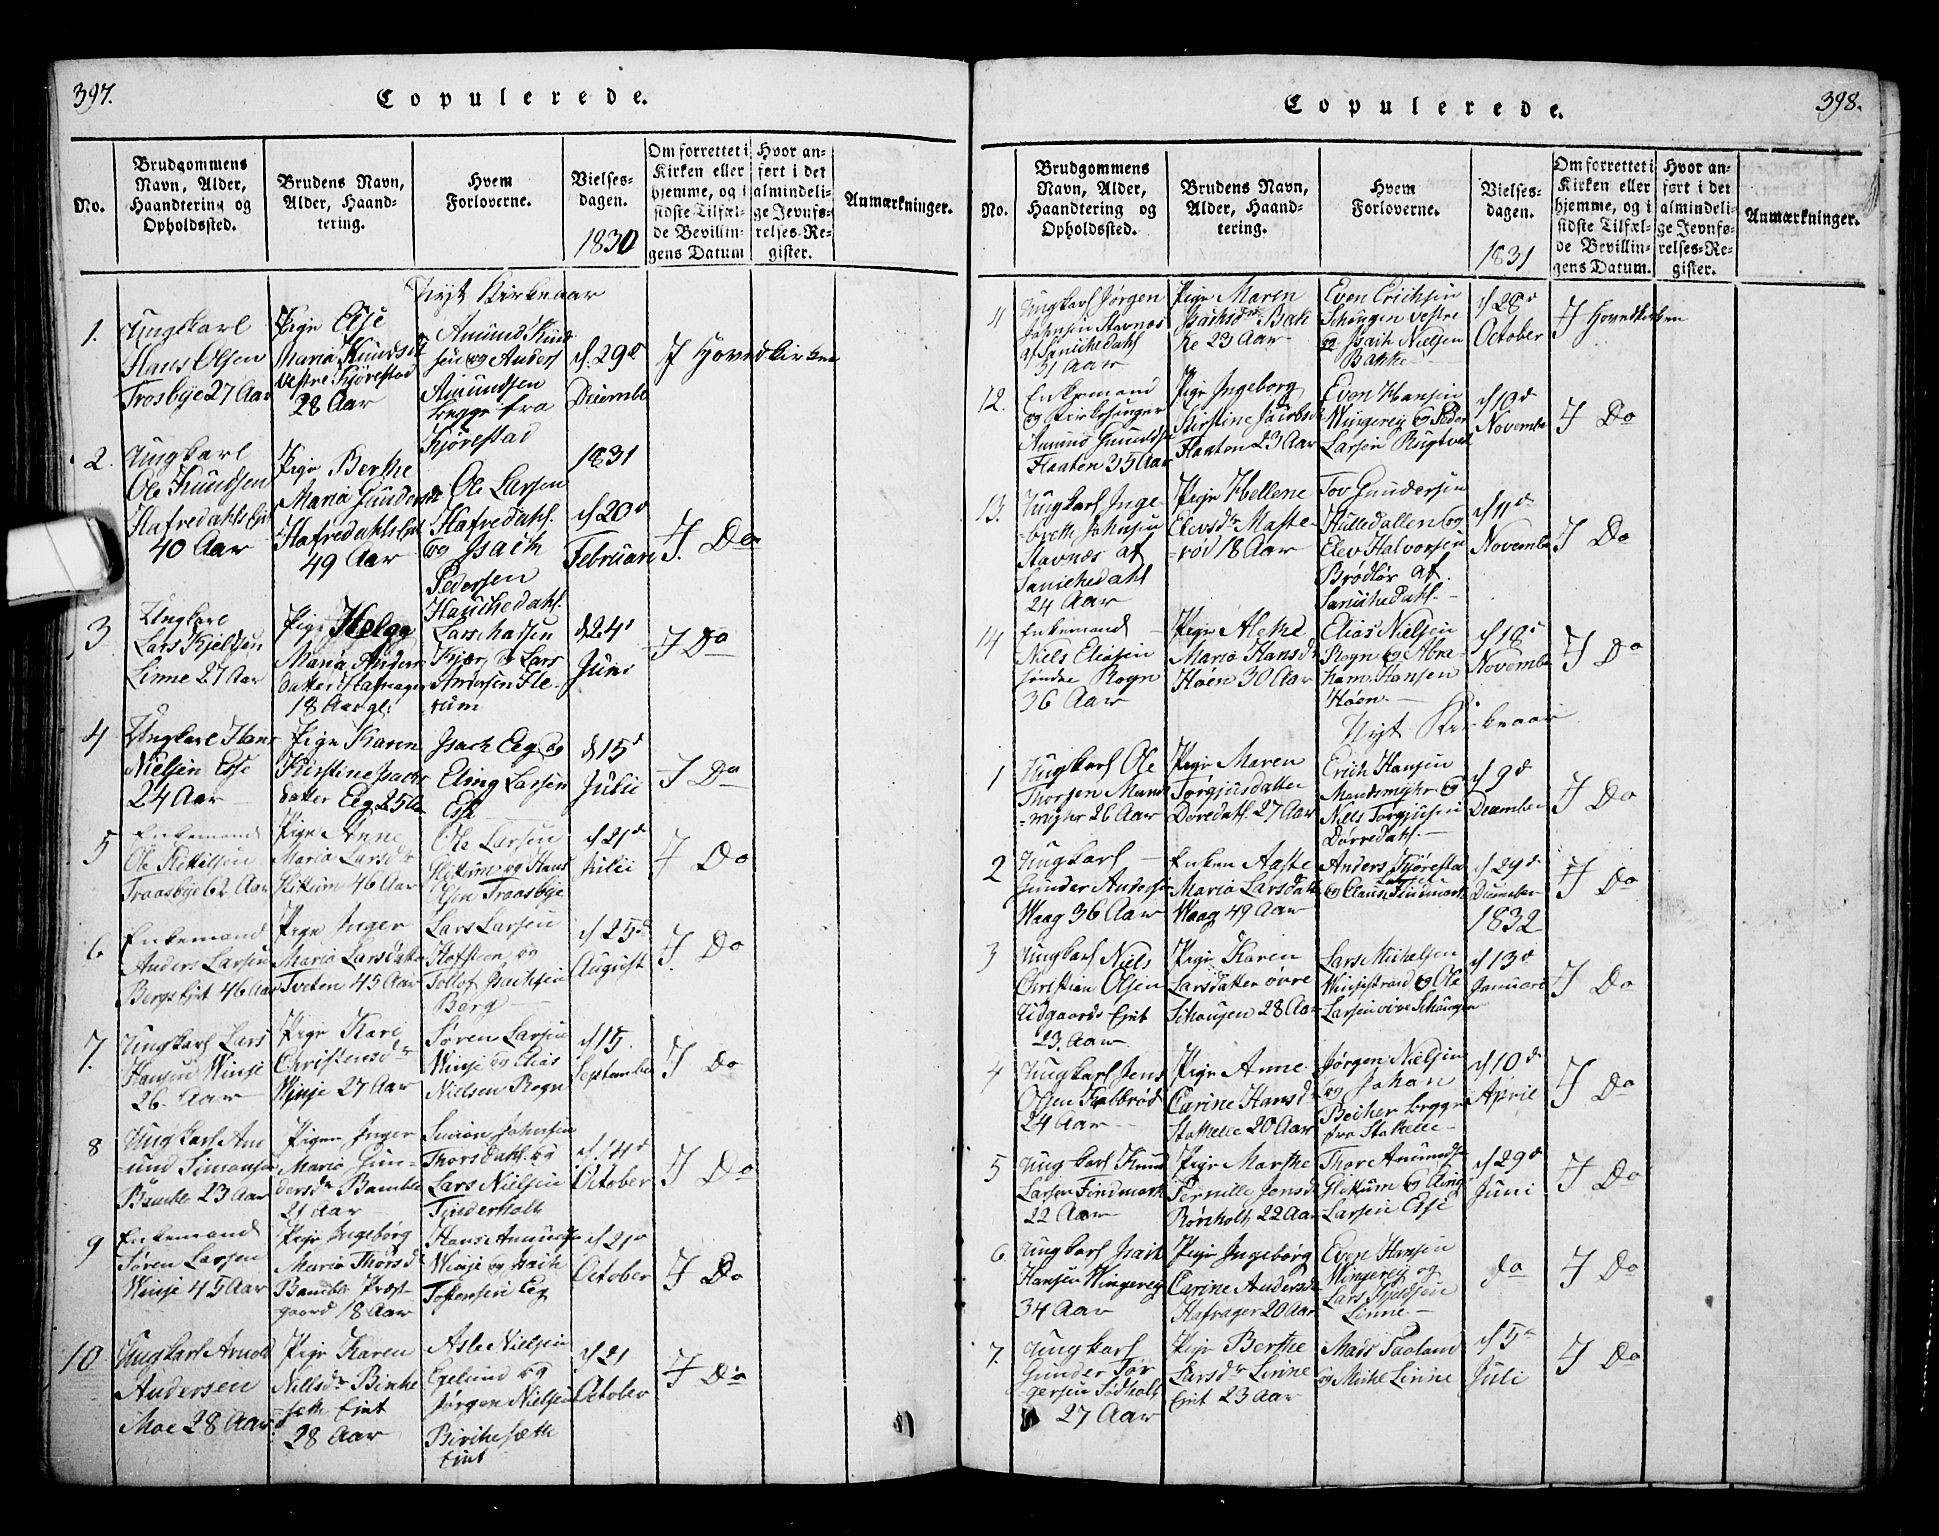 397.
Copulerede.
No.
Brudgommens
Navn, Alder,
Haandtering og
Opholdssted.
Brudens Navn,
Alder, Haand-
tering.
Hvem
Forloverne.
Vielses-
dagen.
1830
Om forrettet i
Kirken eller
hjemme, og i
sidste Tilfæl-
de Bevillin-
gens Datum
Hvor an-
ført i det
almindeli-
ge Jevnfø-
relses-Re-
gister.
Anmærkninger.
Nyt Kirkeaar
1.
Ungkarl
Hans Olsen
Trosbye 27 Aar
Pige Else
Maria Knudsd
Vestre Kjørestad
28 Aar
Amund Knud
sen og Anders
Amundsen
begge fra
Kjørestad
d. 29de
Decembr
I Hovedkirken
2.
Ungkarl
Ole Knudsen
Hafredahls Ejet
40 Aar
Pige Berthe
Maria Gundersd
Hafredahls Ejet
49 Aar
Ole Larsen
Hafredahl.
og Isach
Pedersen
Hauchedahl.
1831
d 20de
Februari
I. Do
3
Ungkarl
Lars Kjeldsen
Linne 27 Aar
Pige Helge
Maria Anders
datter Hafvager
18 Aar gl:
Lars Madsen
Kjær, og Lars
Andersen Fle-
rum
d 24de
Juni
I Do
4
Ungkarl Hans
Nielsen Esse
24 Aar
Pige Karen
Kirstine Isachs
datter Eeg 25 Aar
Isach Eeg og
Eling Larsen
Esse
d 15de
Julii
I Do
5
Enkemand
Ole Kittilsen
Traasbye 62 Aar
Pige Anne
Maria Larsdr
Flekum 46 Aar
Ole Larsen
Flekum og Hans
Olsen Traasbye
d 21de
Julii
I Do
6
Enkemand
Anders Larsen
Bergs Ejet 46 Aar
Pige Inger
Maria Larsdatter
Tveten 45 Aar
Lars Larsen
Hofsteen og
Tollof Isachsen
Berg
d 25de
August
I. Do
7.
Ungkarl Lars
Hansen Winje
26. Aar
Pige Kari
Christensdr
Winje 27 Aar
Søren Larsen
Winje og Elias
Nielsen Rogn
d 15.
Septembr
I Do
8
Ungkarl Am
-und Simonsen
Bamble 23 Aar
Pigen Inger
Maria Gun-
dersdr Bamble
21 Aar
Simon Johnsen
Thorsdahl. og
Lars Nielsen
Tinderholt
d 14de
October
I Do
9
Enkemand
Søren Larsen
Winje 45 Aar
Pige Ingebórg
Maria Thorsd
Bamble Præst-
gaard 18 Aar
Hans Amundsen
Winje og Isach
Tostensen Eeg
d 21de
October
I Do
10
Ungkarl Arnold
Andersen
Moe 28 Aar.
Pige Karen
Nillsdr Birke
seth Ejet
28 Aar
Asle Nielsen
Egelund og
Jørgen Nielsen
Birchesæth
Ejet
d 21
October
I Do
398.
Copulerede.
No.
Brudgommens
Navn, Alder,
Haandtering og
Opholdssted.
Brudens Navn,
Alder, Haand-
tering.
Hvem
Forloverne.
Vielses-
dagen.
1831
Om forrettet i
Kirken eller
hjemme, og i
sidste Tilfæl-
de Bevillin-
gens Datum.
Hvor an-
ført i det
almindeli-
ge Jevnfø-
relses-Re-
gister.
Anmærkninger.
11
Ungkarl Jørgen
Johnsen Stavnæs
af Sanichedahl
31 Aar
Pige Maren
Isachsdr Bak
ke 23 Aar
Even Erichsen
Schougen vestre
og Isach Nielsen
Bakke
d 28de
October
I Hovedkirken
12.
Enkemand
og Kirkesanger
Amund Gundersen
Flaaten 35 Aar
Pige Ingeborg
Kirstine Jacobsd
Flaaten 23 Aar
Even Hansen
Wingerej og Peder
Larsen Rugtved
d 10de
Novembr
I Do
13.
Ungkarl Inge
breth Johnsen
Stavnæs af
Sanichedahl
24 Aar
Pige Hellene
Elevsdr Maste-
-rod 18 Aar
Tov Gundersen
Hulledallen og
Elev Halvorsen
Brødløs af.
Sanichedahl.
d 11de
Novembr
I Do
14
Enkemand
Niels Eliasen
søndre Rogn
36 Aar
Pige Alehe
Maria Hansdr
Høen 30 Aar
Elias Nielsen
Rogn og Abra-
ham Hansen
Høen.
d 18de
Novembr
I Do
Nyt Kirkeaar
1
Ungkarl Ole
Thorsen Mands
-myhr 26 Aar
Pige Maren
Torgjusdatter
Doredahl. 27 Aar
Erich Hansen
Mandsmyhr og
Niels Torgjusen
Dørredahl.
d 9de
December
I Do
2
Ungkarl
Gunder Andersen
Waag 36 Aar
Enken Aaste
Maria Larsdatter
Waag 49 Aar
Anders Kjørestad
og Claus Larsen Findmark
d 29de
December
I Do
1832
3
Ungkarl Niels
Christian Olsen
Udgaards Ejet
23. Aar
Pige Karen
Larsdatter øvre
Schougen 28 Aar
Lars Michelsen
Winjestrand og Ole
Larsen øvre Schougen
d 13de
Januarii
I Do
4
Ungkarl Jens
Olsen Kalbrød
24 Aar
Pige Anne
Carine Hansdr
Stokelle 20 Aar
Jørgen Nielsen
og Johan
Becher begge
fra Stokelle
d 10de
Aprill
I Do
5
Ungkarl Knud
Larsen Findmark
22 Aar
Pige Marthe
Pernille Jonsdr
Rønholt 22 Aar
Thor Amunds
Flekum og Aung
Larsen Esse
d 29de
Juni
I Do
6
Ungkarl Isach
Hansen Wingerej
34 Aar
Pige Ingeborg
Carine Andersdr
Hafvager 20 Aar
Even Hansen
Wingerej og
Lars Kjeldsen
Linne
do
I Do
7.
Ungkarl
Gunder Tor
-gersen Tødholt
27 Aar
Pige Berthe
Larsdr Linne
Ejet 23 Aar
Mads Taaland
og Michl Linne
d 5te
Juli
I Do